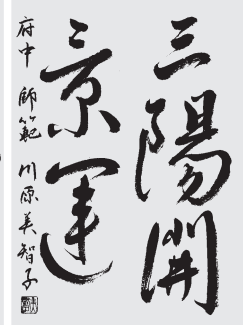 三陽開
景運
府中 師範 川原美智子